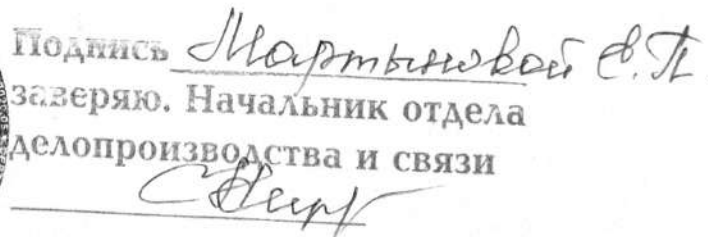 Подпись Мартыновой Е.П.
заверяю. Начальник отдела
делопроизводства и связи